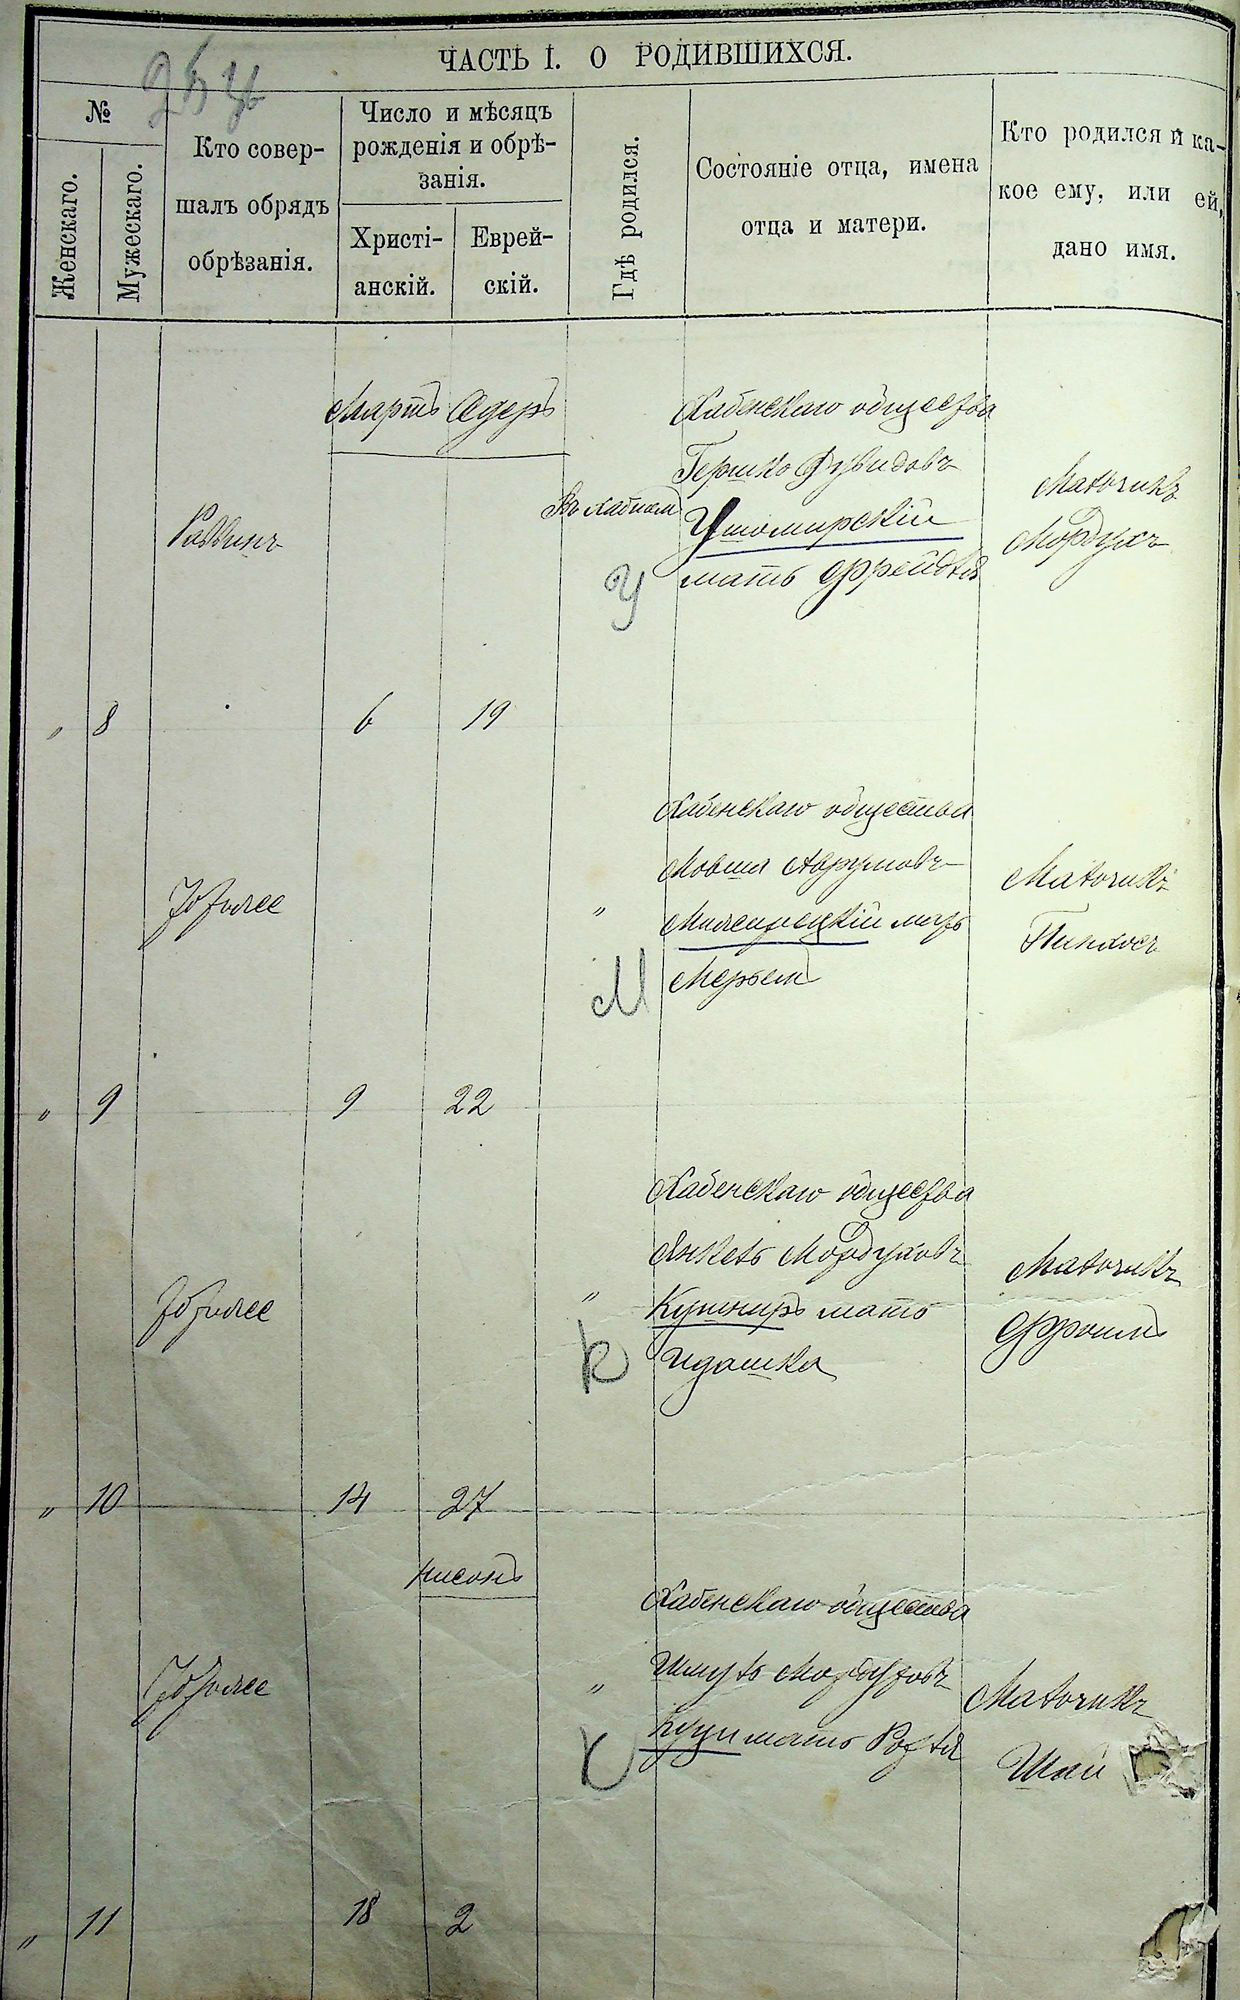 ЧАСТЬ I. О РОДИВШИХСЯ.
№
Женскаго.
Мужескаго.
Кто совер-
шалъ обрядъ
обрѣзанія.
Число и мѣсяцъ
рожденія и обрѣ-
занія.
Христі-
анскій.
Еврей-
скій.
Гдѣ родился.
Состояніе отца, имена
отца и матери.
Кто родился и ка-
кое ему, или ей,
дано имя.
Мартъ Адеръ
Раввинъ
Въ Хабном
Хабенскаго общества
Гершко Дувидовъ
Ушомирскій
мать Фрейдля
Мальчикъ
Мордухъ
У
" 8 6 19
"
Хабенскаго общества
Мовша Аврумовъ
мать
Мерьем
Мальчикъ
Пинхосъ
М
" 9 9 22
"
Хабенскаго общества
Янкель Мордуховъ
Кушниръ мать
Идашка
Мальчикъ
Фроимъ
К
" 10 14 27
Нисонъ
"
Хабенскаго общества
Шмуль Мордуховъ
мать
Мальчикъ
Шай
К
" 11 18 2